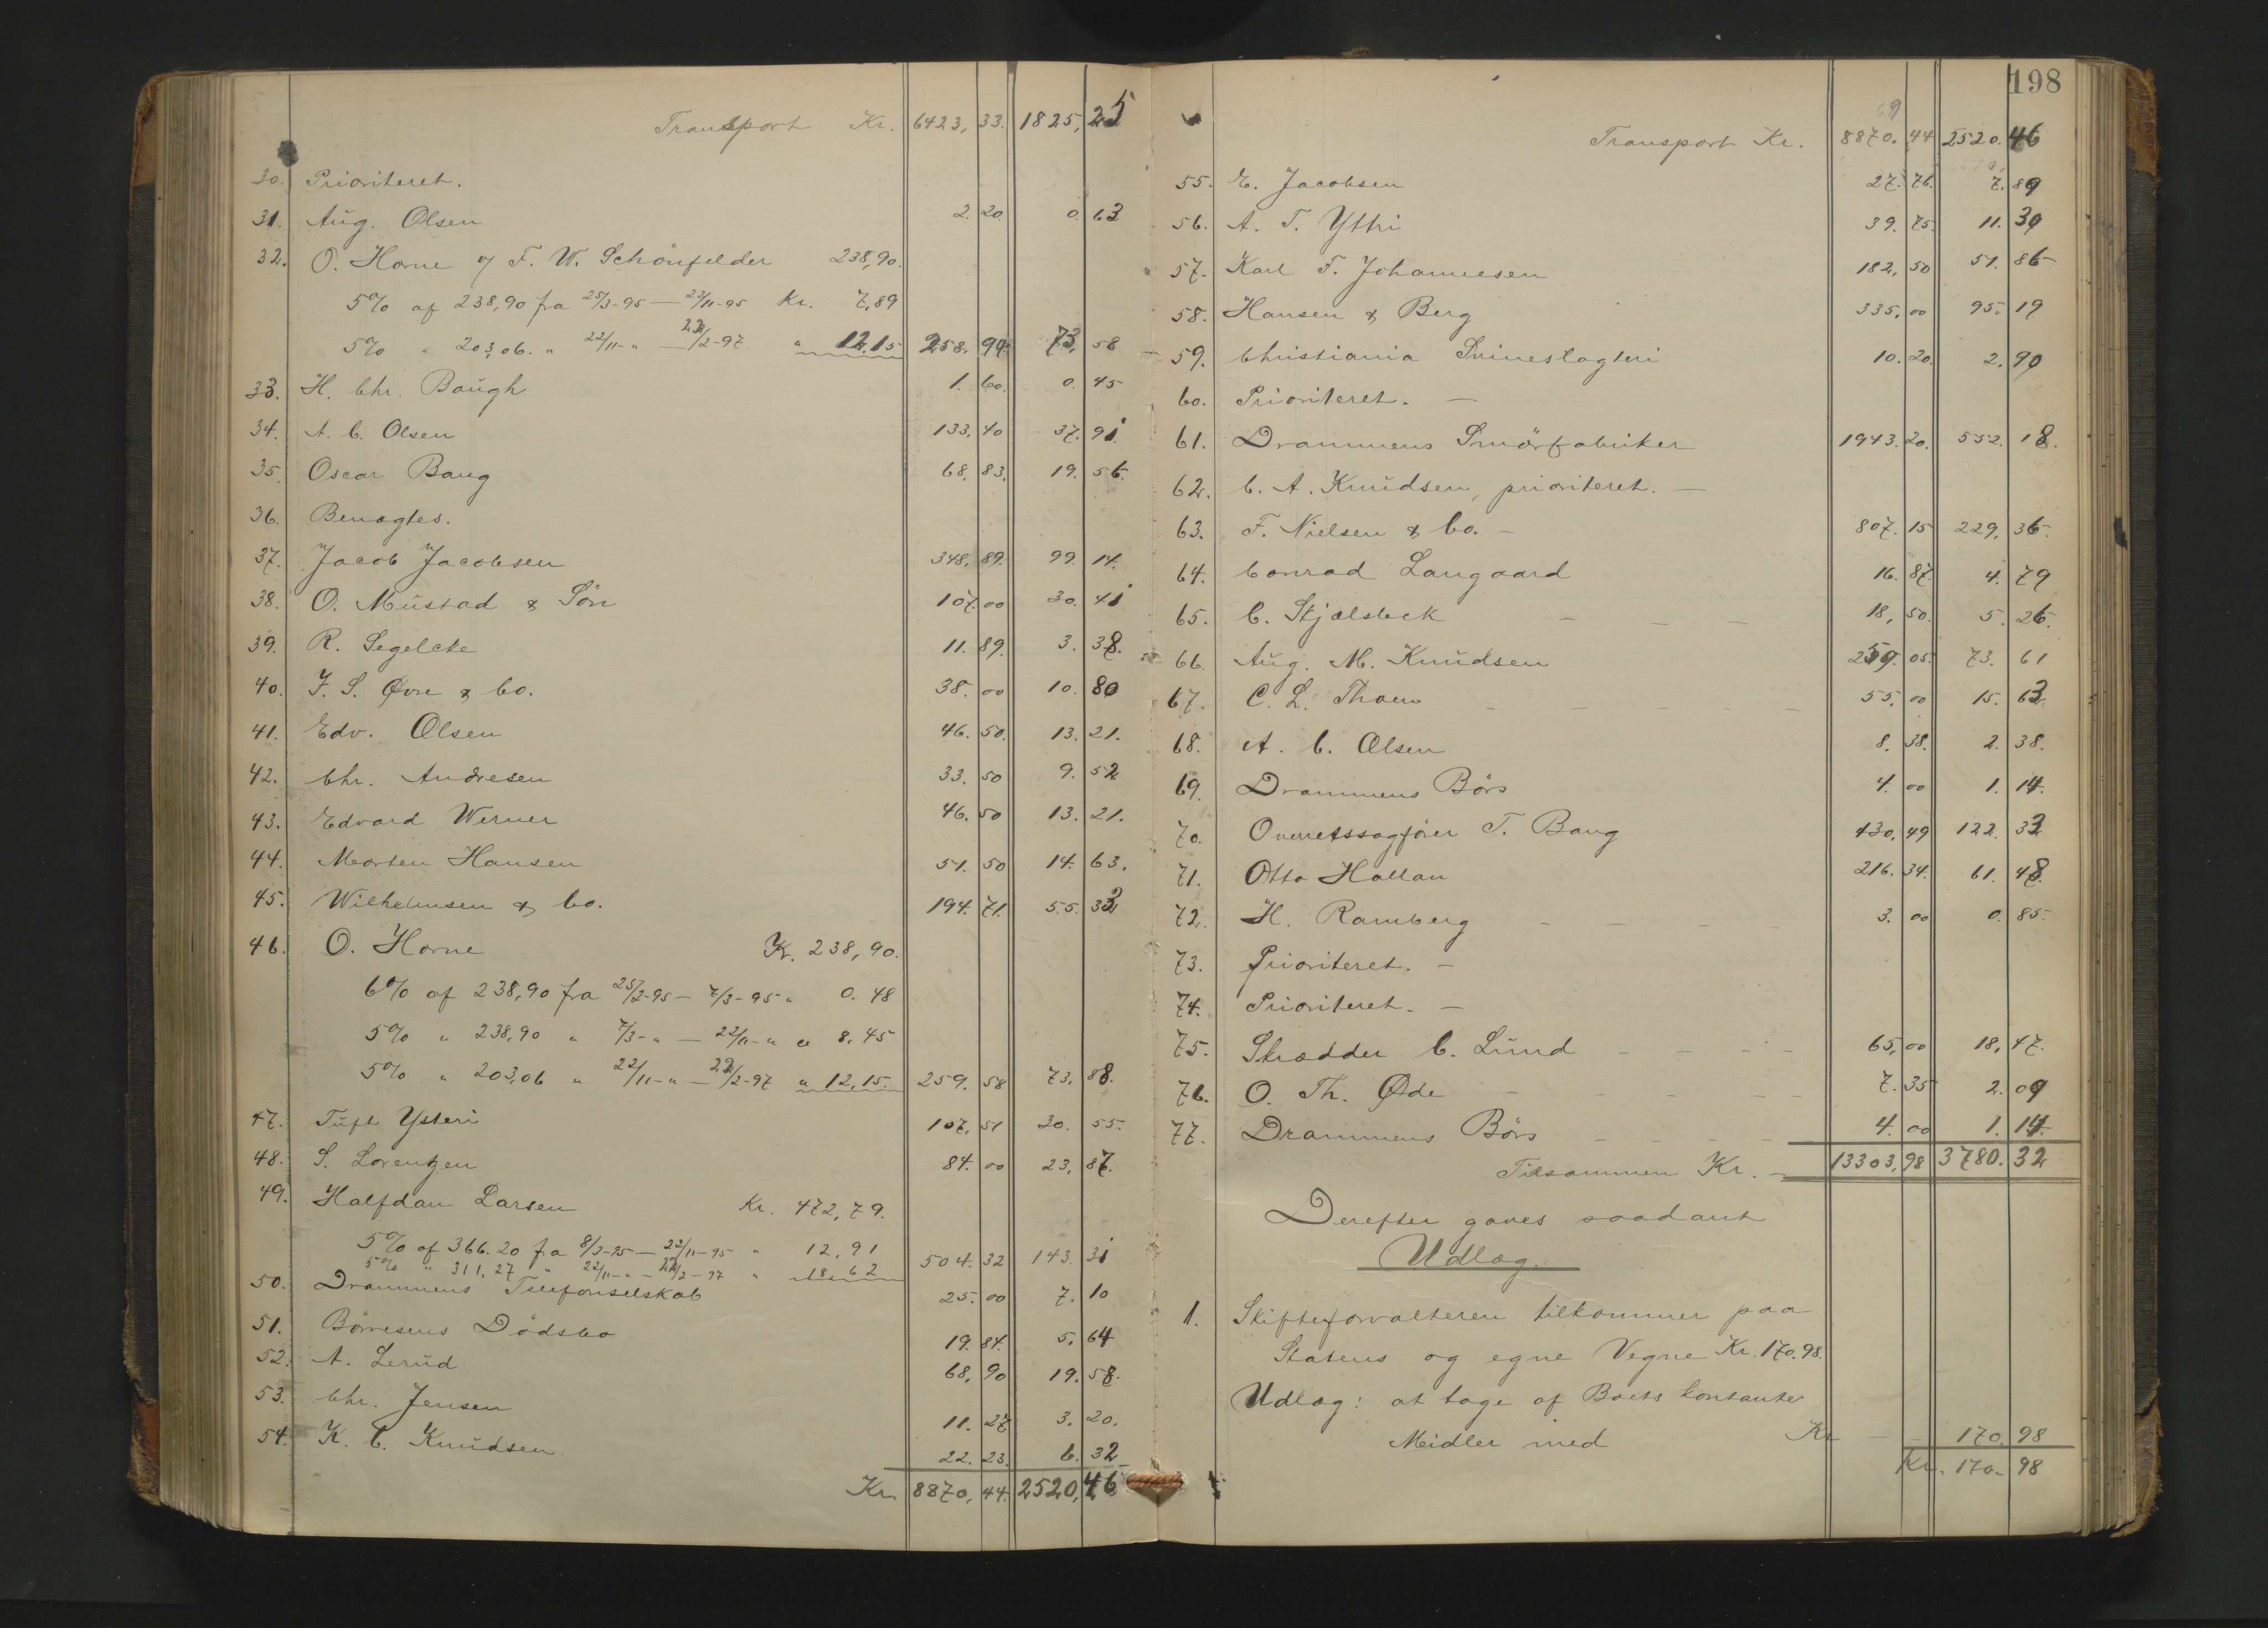 Transport Kr. 6423,33. 1825,25
30. Prioriteret.
31. Aug. Olsen 2.20. 0.63
32. O. Horne v/ F. W. Schönfelder 238,90.
5% af 238,90 fra 25/3-95 — 22/11-95 Kr. 7,89
5% " 203,06. " 22/11-" — 22/2-97 " 12.15 258.94 73,58
33. H. Chr. Baugh 1.60. 0.45
34. A. C. Olsen 133,40 37.91
35. Oscar Baug 68,83. 19.56.
36. Benægtes.
37. Jacob Jacobsen 348,89. 99.14.
38. O. Mustad & Sön 107.00 30.41
39. R. Segelcke 11.89. 3.38.
40. J. S. Øvre & Co. 38.00 10.80
41. Edv. Olsen 46.50. 13.21.
42. Chr. Andresen 33.50 9.52
43. Edvard Werner 46.50 13.21.
44. Morten Hansen 51.50 14.63.
45. Wilhelmsen & Co. 194.71. 55.33
46. O. Horne Kr. 238,90.
6% af 238,90 fra 25/2-95 — 7/3-95 " 0.48
5% " 238,90 " 7/3-" — 22/11-" " 8.45
5% " 203,06 " 22/11-" — 22/2-97 " 12,15. 259.58 73.88.
47. Tuft Ysteri 107,51 30.55.
48. S. Lorentzen 84.00 23,87.
49. Halfdan Larsen Kr. 472,79.
5% af 366.20 fra 8/3-95 — 22/11-95 " 12,91
5% " 311,27 " 22/11-" — 22/2-97 " 18,62 504.32 143.31
50. Drammens Telefonselskab 25.00 7.10
51. Börresens Dödsbo 19.84. 5.64
52. A. Lerud 68,90 19.58.
53. Chr. Jensen 11.27 3.20.
54. K. C. Knudsen 22.23. 6.32
Kr. 8870,44. 2520,46
198
69
Transport Kr. 8870.44 2520.46
55. E. Jacobsen 27.76. 7.89
56. A. T. Yttri 39.75. 11.30
57. Karl F. Johannesen 182,50 51.86
58. Hansen & Berg 335.00 95.19
59. Christiania Svineslagteri 10.20. 2.90
60. Prioriteret. —
61. Drammens Smörfabriker 1943.20. 552.18.
62. C. A. Knudsen, prioriteret. —
63. F. Nielsen & Co. — 807.15 229,36.
64. Conrad Langaard 16.87. 4.79
65. C. Skjælsbek — — — 18,50. 5.26.
66. Aug. M. Knudsen 259.05. 73.61
67. C. L. Thom — — — — — 55,00 15.63
68. A. C. Olsen 8.38. 2.38.
69. Drammens Börs 4.00 1.14.
70. Overretssagförer T. Baug 430,49 122.33
71. Otto Hallan 216.34. 61.48.
72. H. Ramberg — — — — 3.00 0.85.
73. Prioriteret. —
74. Prioriteret. —
75. Skrædder C. Lund — — — — 65,00 18,47.
76. O. Th. Øde — — — — 7.35 2.09
77. Drammens Börs — — — — 4.00 1.14.
Tilsammen Kr. — 13303,98 3780.32
Derefter gaves saadant
Udlæg.
1. Skifteforvalteren tilkommer paa
Statens og egne Vegne Kr. 170.98.
Udlæg: at tage af Boets kontante
Midler med Kr — — 170.98
Kr. 170.98